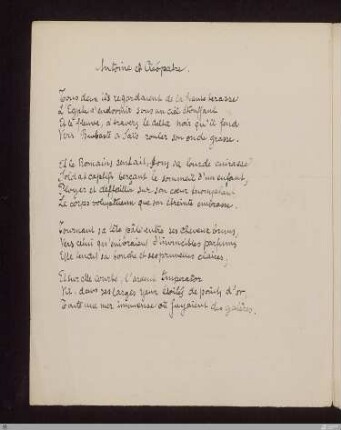 Antoine et Cléopatre.
Tous deux ils regardaient de la haute terrasse
L'Egypte s'endormir sous un ciel étouffant
Et le Fleuve, à travers le delta noir qu'il fend
Vers Bubaste ou Saïs rouler son onde grasse.
Et le Romain sentait sous la lourde cuirasse
Soldat captif berçant le sommeil d'un enfant,
Ployer et défaillir sur son cœur triomphant
Le corps voluptueux que son étreinte embrasse.
Tournant sa tête pâle entre ses cheveux bruns,
Vers celui qu'enivraient d'invincibles parfums
Elle tendit sa bouche et ses prunelles claires;
Et sur elle courbé, l'ardent Imperator
Vit dans ses larges yeux étoilés de points d'or
Toute une mer immense où fuyaient des galères.